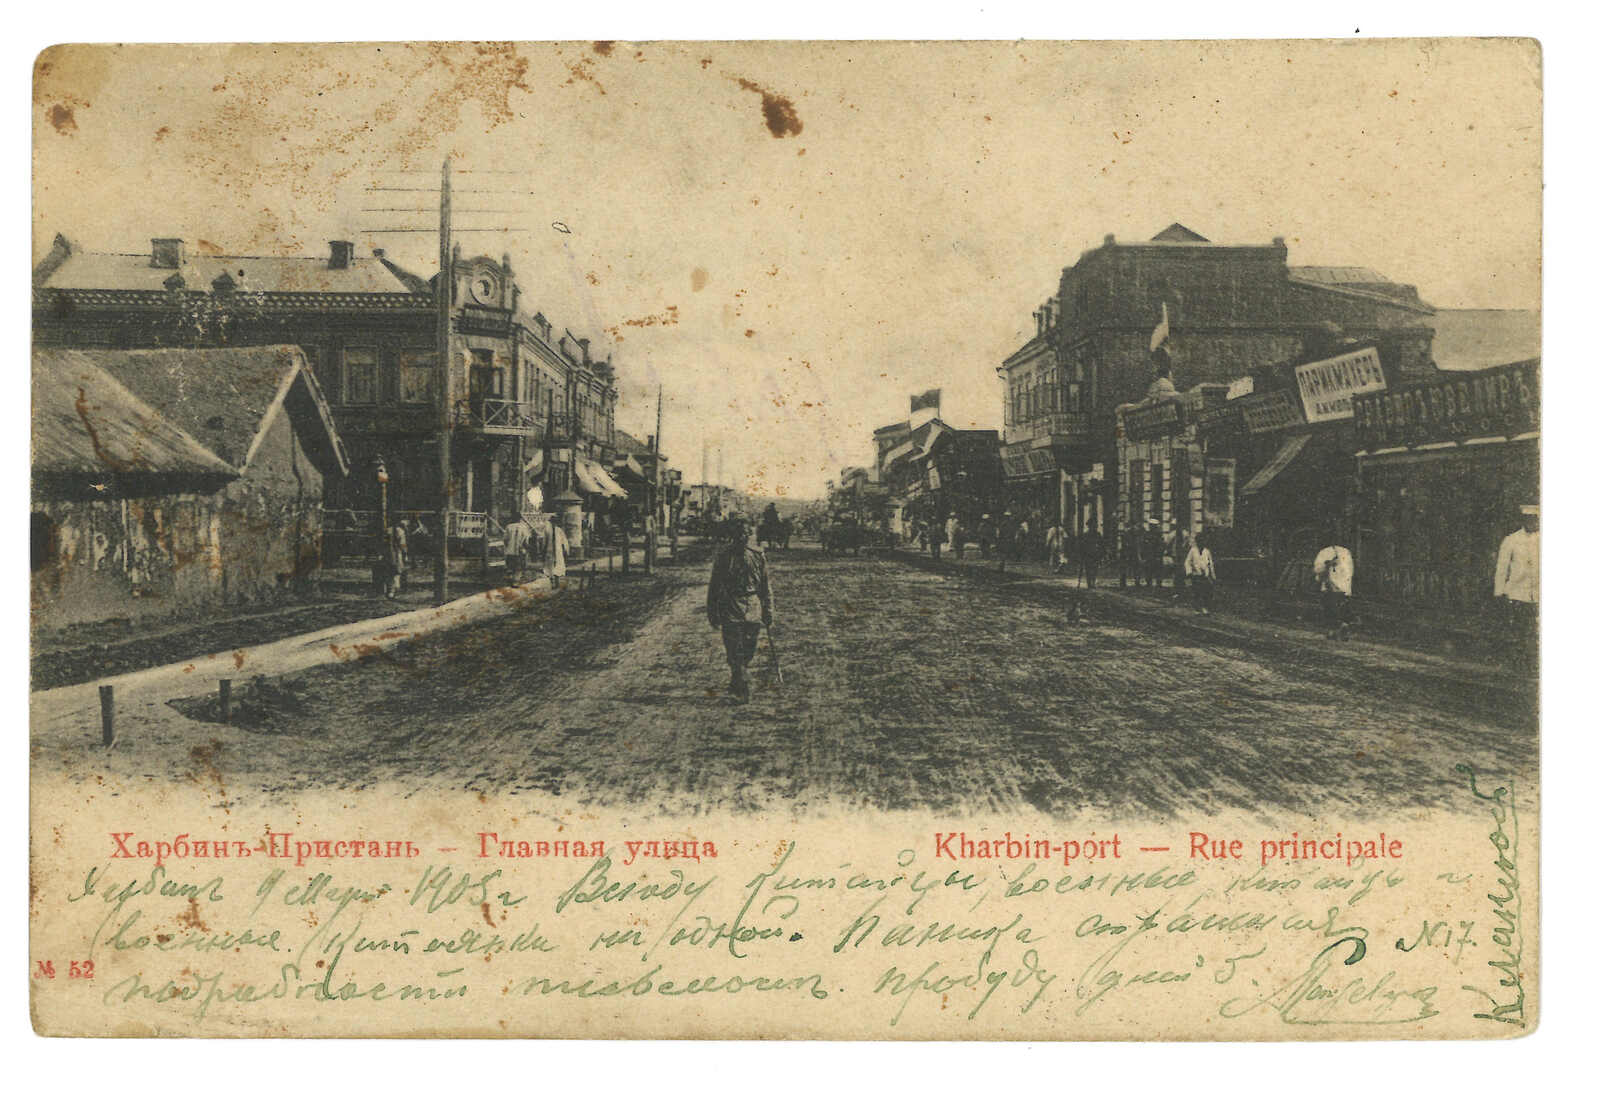 ПАРИКМАХЕРЪ
Харбинъ-Пристань — Главная улица
Kharbin-port — Rue principale
Харбинъ 9 Марта 1905 г Всюду Китайцы, военные, китайцы и
военные. Китаянки ни одной. Паника страшная
№ 52
N 17.
подробности письмомъ. пробуду дней 5.